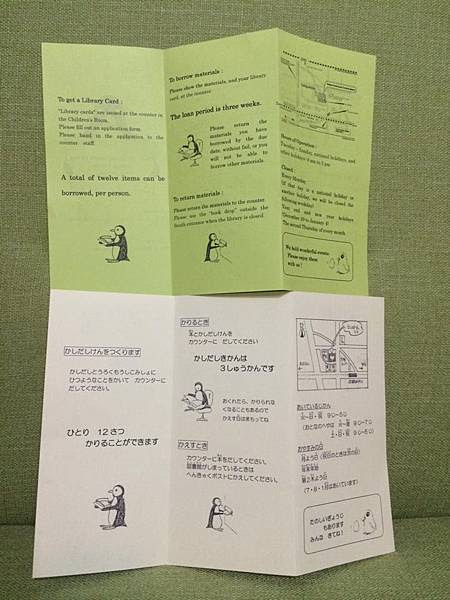 To get a Library Card :
"Library cards" are issued at the counter in
the Children's Room.
Please fill out an application form.
Please hand in the application to the
counter staff.
A total of twelve items can be
borrowed, per person.
To borrow materials :
Please show the materials, and your library
card, at the counter.
The loan period is three weeks.
Please return the
materials you have
borrowed by the due
date, without fail, or you
will not be able to
borrow other materials.
To return materials :
Please return the materials to the counter.
Please use the "book drop" outside the
South entrance when the library is closed.
Hours of Operation :
Tuesday – Sunday, national holidays, and
other holidays: 9 am to 5 pm
Closed :
Every Monday
(If that day is a national holiday or
another holiday, we will be closed the
following weekday)
Year end and new year holidays
(December 29 to January 4)
The second Thursday of every month
We hold wonderful events.
Please enjoy them
with us !
かしだしけんをつくります
かしだしとうろくもうしこみしょに
ひつようなことをかいて カウンターに
だしてください。
ひとり 12さつ
かりることができます
かりるとき
本とかしだしけんを
カウンターに だしてください
かしだしきかんは
3しゅうかんです
おくれたら、かりられな
くなることもあるので
かえす日はまもってね
かえすとき
カウンターに本をだしてください。
図書館がしまっているときは
へんきゃくポストにかえしてください。
あいているじかん
火~日・祝 9:00~5:00
(おとなのへやは 火~金 9:00~7:00
土・日・祝 9:00~5:00)
おやすみの日
月よう日
年末年始
第2木よう日
(7・8・1月はあいています)
たのしいぎょうじ
もあります
みんな きてね!